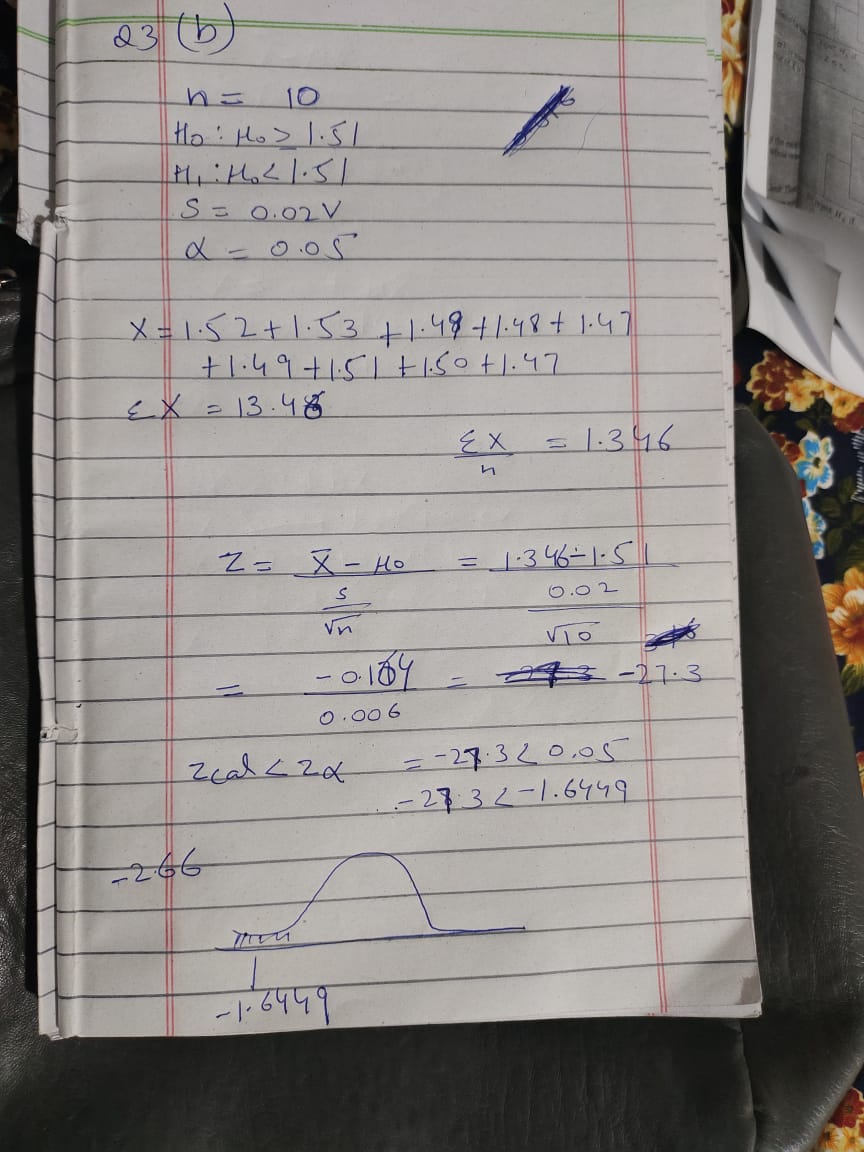 23 (b)
n = 10
H₀ : μ₀ ≥ 1.51
H₁ : μ₀ < 1.51
S = 0.02V
α = 0.05
X = 1.52 + 1.53 + 1.49 + 1.48 + 1.47
+ 1.49 + 1.51 + 1.50 + 1.47
ΣX = 13.46
ΣX/n = 1.346
Z = (X̄ - μ₀)/(s/√n) = (1.346 - 1.51)/(0.02/√10)
= -0.164/0.006 = -27.3
Zcal < Zα = -27.3 < 0.05
-27.3 < -1.6449
-2.66
-1.6449